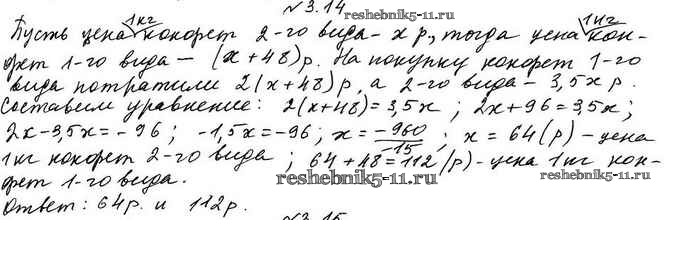 №3.14
reshebnik5-11.ru
Пусть цена 1кг конфет 2-го вида - x р, тогда цена 1кг кон-
фет 1-го вида - (x+48)р. На покупку конфет 1-го
вида потратили 2(x+48)р, а 2-го вида - 3,5x р.
Составим уравнение: 2(x+48)=3,5x; 2x+96=3,5x;
2x-3,5x=-96; -1,5x=-96; x=-960/-15; x=64(р)-цена
1кг конфет 2-го вида; 64+48=112(р)-цена 1кг кон-
фет 1-го вида.
reshebnik5-11.ru
reshebnik5-11.ru
Ответ: 64р. и 112р.
№3.15